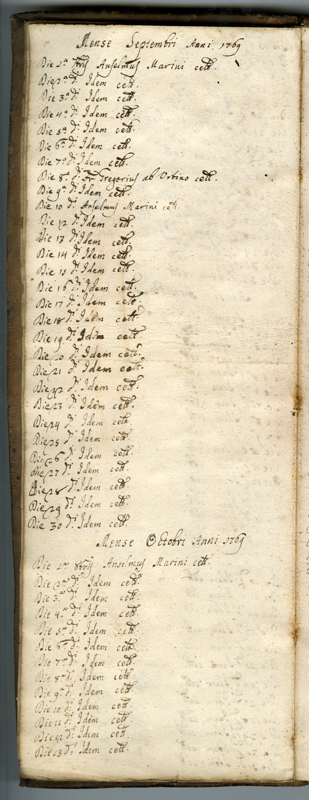 Mense Septembri Anni 1769
Die 1ª 7bris Anselmus Marini celt.
Die 2ª dti Idem celt.
Die 3ª dti Idem celt.
Die 4ª dti Idem celt.
Die 5ª dti Idem celt.
Die 6ª dti Idem celt.
Die 7ª dti Idem celt.
Die 8ª dti Fr Gregorius ab Urbino celt.
Die 9ª dti Idem celt.
Die 10 dti Anselmus Marini celt.
Die 12 dti Idem celt.
Die 13 dti Idem celt.
Die 14 dti Idem celt.
Die 15 dti Idem celt.
Die 16 dti Idem celt.
Die 17 dti Idem celt.
Die 18 dti Idem celt.
Die 19 dti Idem celt.
Die 20 dti Idem celt.
Die 21 dti Idem celt.
Die 22 dti Idem celt.
Die 23 dti Idem celt.
Die 24 dti Idem celt.
Die 25 dti Idem celt.
Die 26 dti Idem celt.
Die 27 dti Idem celt.
Die 28 dti Idem celt.
Die 29 dti Idem celt.
Die 30 dti Idem celt.
Mense Octobri Anni 1769
Die 1ª 8bris Anselmus Marini celt.
Die 2ª dti Idem celt.
Die 3ª dti Idem celt.
Die 4ª dti Idem celt.
Die 5ª dti Idem celt.
Die 6ª dti Idem celt.
Die 7ª dti Idem celt.
Die 8ª dti Idem celt.
Die 9ª dti Idem celt.
Die 10 dti Idem celt.
Die 11 dti Idem celt.
Die 12 dti Idem celt.
Die 13 dti Idem celt.